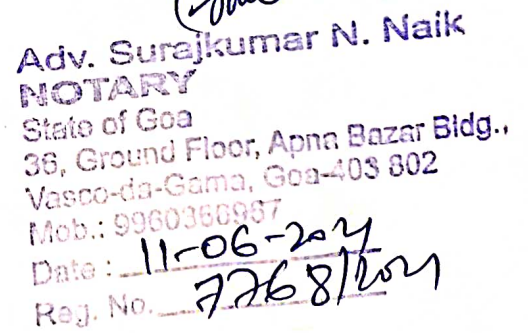 Adv. Surajkumar N. Naik
NOTARY
State of Goa
36, Ground Floor, Apna Bazar Bldg.,
Vasco-da-Gama, Goa-403 802
Mob.: 9960360967
Date : 11-06-2021
Reg. No. 7768/2021